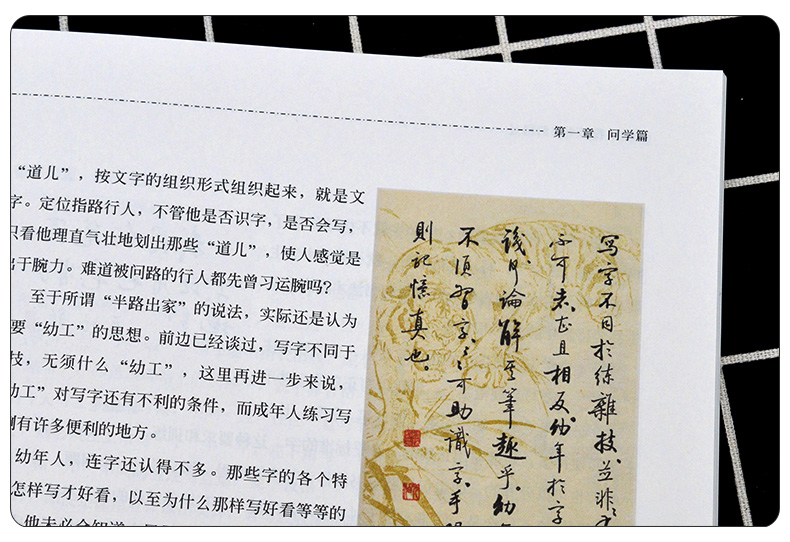 第一章 问学篇
“道儿”，按文字的组织形式组织起来，就是文
字。定位指路行人，不管他是否识字，是否会写，
只看他理直气壮地划出那些“道儿”，使人感觉是
出于腕力。难道被问路的行人都先曾习运腕吗？
至于所谓“半路出家”的说法，实际还是认为
要“幼工”的思想。前边已经谈过，写字不同于
技，无须什么“幼工”，这里再进一步来说，
幼工”对写字还有不利的条件，而成年人练习写
则有许多便利的地方。
幼年人，连字还认得不多。那些字的各个特
怎样写才好看，以至为什么那样写好看等等的
写字不同於练雜技並非
不可且相反幼年於字
論解筆趣乎幼
不須習字可助識字手
則記憶真也。